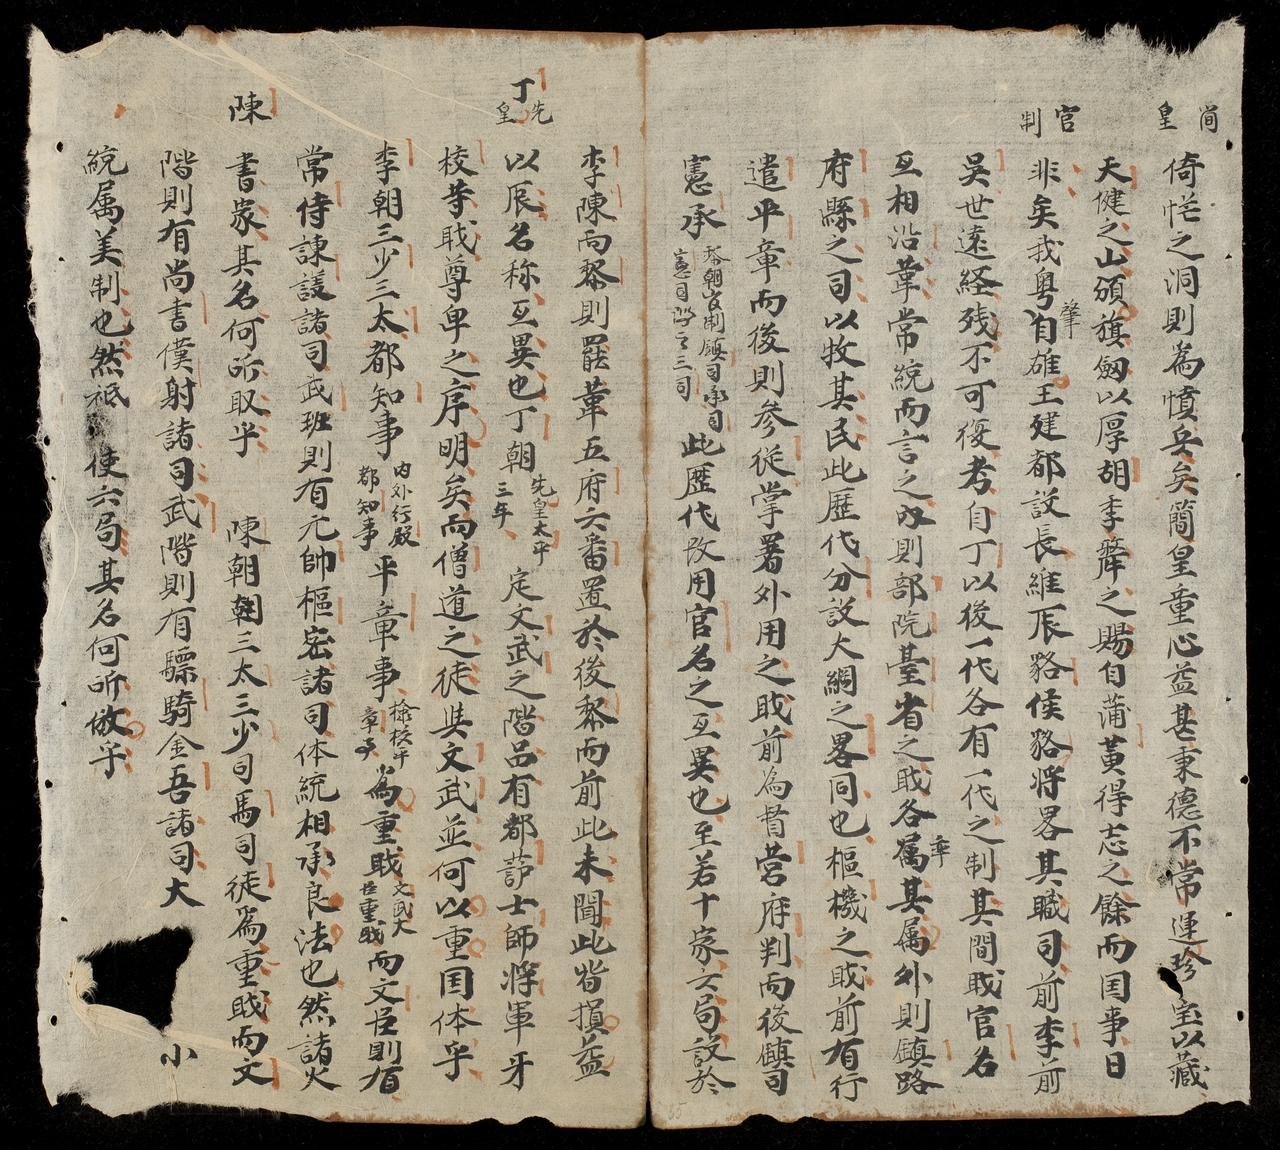 簡皇
倚恾之洞則為憤兵矣簡皇童心益甚秉德不常運珍室以藏
天健之山頒旗劔以厚胡季犛之賜自蒲黃得志之餘而国事日
官制
非矣我粵肇自雄王建都設長維辰貉侯貉將畧其職司前李前
吳世遠経残不可復考自丁以後一代各有一代之制其間職官名
互相沿革常統而言之內則部院臺省之職各率屬其属外則鎮路
府縣之司以牧其民此歷代分設大綱之畧同也樞機之職前有行
遣平章而後則參從掌署外用之職前為督営府判而後鎮司
憲承
黎朝官制鎮司承司
憲司謂之三司
此歷代改用官名之互異也至若十家六局設於
李陳而黎則罷革五府六番置於後黎而前此未聞此皆損益
丁先皇
以辰名称互異也丁朝
先皇太平
三年
定文武之階品有都護士師將軍牙
校等職尊卑之序明矣而僧道之徒与文武並何以重国体乎
李朝三少三太都知事
內外行殿
都知事
平章事
檢校平
章事
為重職
文武大
臣重職
而文臣則有
常侍諫議諸司武班則有元帥樞密諸司体統相承良法也然諸火
陳
書家其名何所取乎 陳朝朝三太三少司馬司徒爲重職而文
階則有尚書僕射諸司武階則有驃騎金吾諸司大小
統属美制也然祗使六局其名何所倣乎